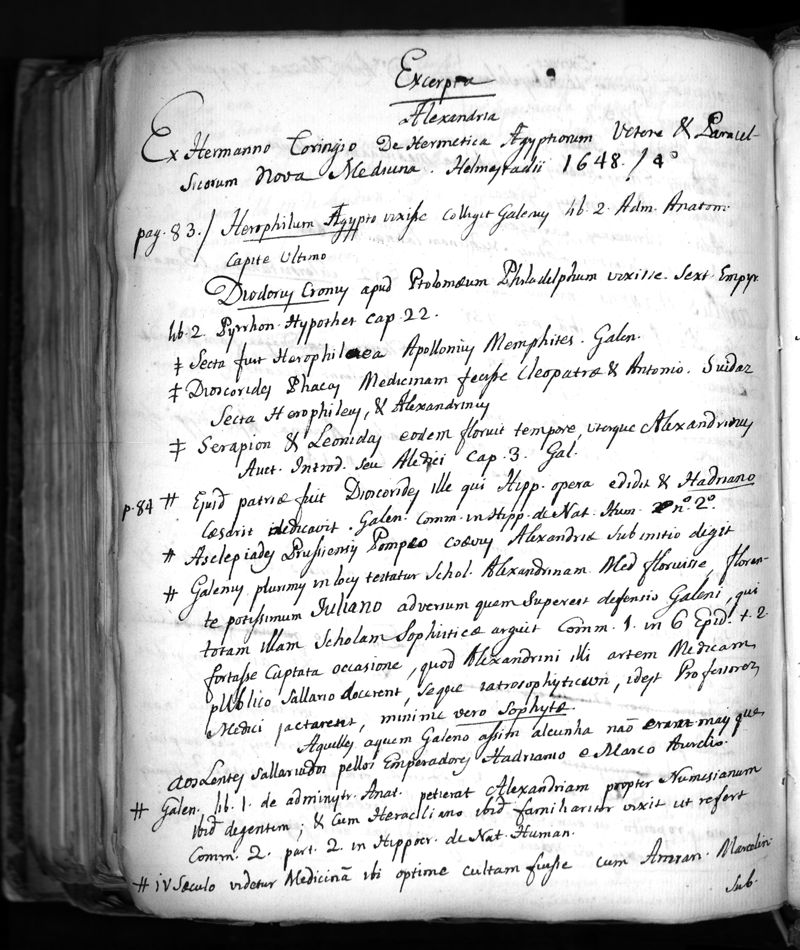 Excerpta
Alexandria
Ex Hermanno Coringio De Hermetica Ægyptiorum Vetere & Paracel-
sicorum Nova Medicina. Helmestadii 1648. / 4°
pag. 83. / Herophilum Ægypto vixisse colligit Galenus lib. 2. Adm. Anatom.
Capite Ultimo
Diodorus Cronus apud Ptolomæum Philadelphum vixisse. Sext. Empyr.
lib. 2. Pyrrhon. Hypothes cap. 22.
‡ Secta fuit Herophilea Apollonius Memphites. Galen.
‡ Dioscorides Phacas Medicinam fecisse Cleopatræ & Antonio. Suidas
Secta Herophileus, & Alexandrinus
‡ Serapion & Leonidas eodem floruit tempore, uterque Alexandrinus
Auct. Introd. seu Medici cap. 3. Gal.
p. 84 # Ejusd patriæ fuit Dioscorides ille qui Hipp. opera edidit & Hadriano
Cæsari dedicavit. Galen. Comm. in Hipp. de Nat. Hum. n° 2°.
# Asclepiades Prusiensis Pompeo coævus Alexandriæ sub initio degit
# Galenus plurimis in locis testatur Schol. Alexandrinam Med floruisse, floren-
te potissimum Juliano adversum quem superest defensio Galeni, qui
totam illam Scholam Sophisticæ arguit Comm. 1. in 6 Epid. t. 2.
fortasse Captata occasione, quod Alexandrini illi artem Medicam
publico sallario docerent, seque iatrosophysticum, idest Professores
Medici jactarent, minime vero Sophytæ.
Aquelles aquem Galeno assim alcunha não eram mais que
aos Lentes sallariados pellos Emperadores Hadriano e Marco Aurelio.
# Galen. lib. 1. de administr. Anat. petierat Alexandriam propter Numisianum
ibid degentem; & cum Heracliano ibid familiariter vixit ut refert
Comm. 2. part. 2. in Hippocr. de Nat. Human.
# iv Sæculo videtur Medicinã ibi optime cultam fuisse cum Amman. Marcelin.
sub.